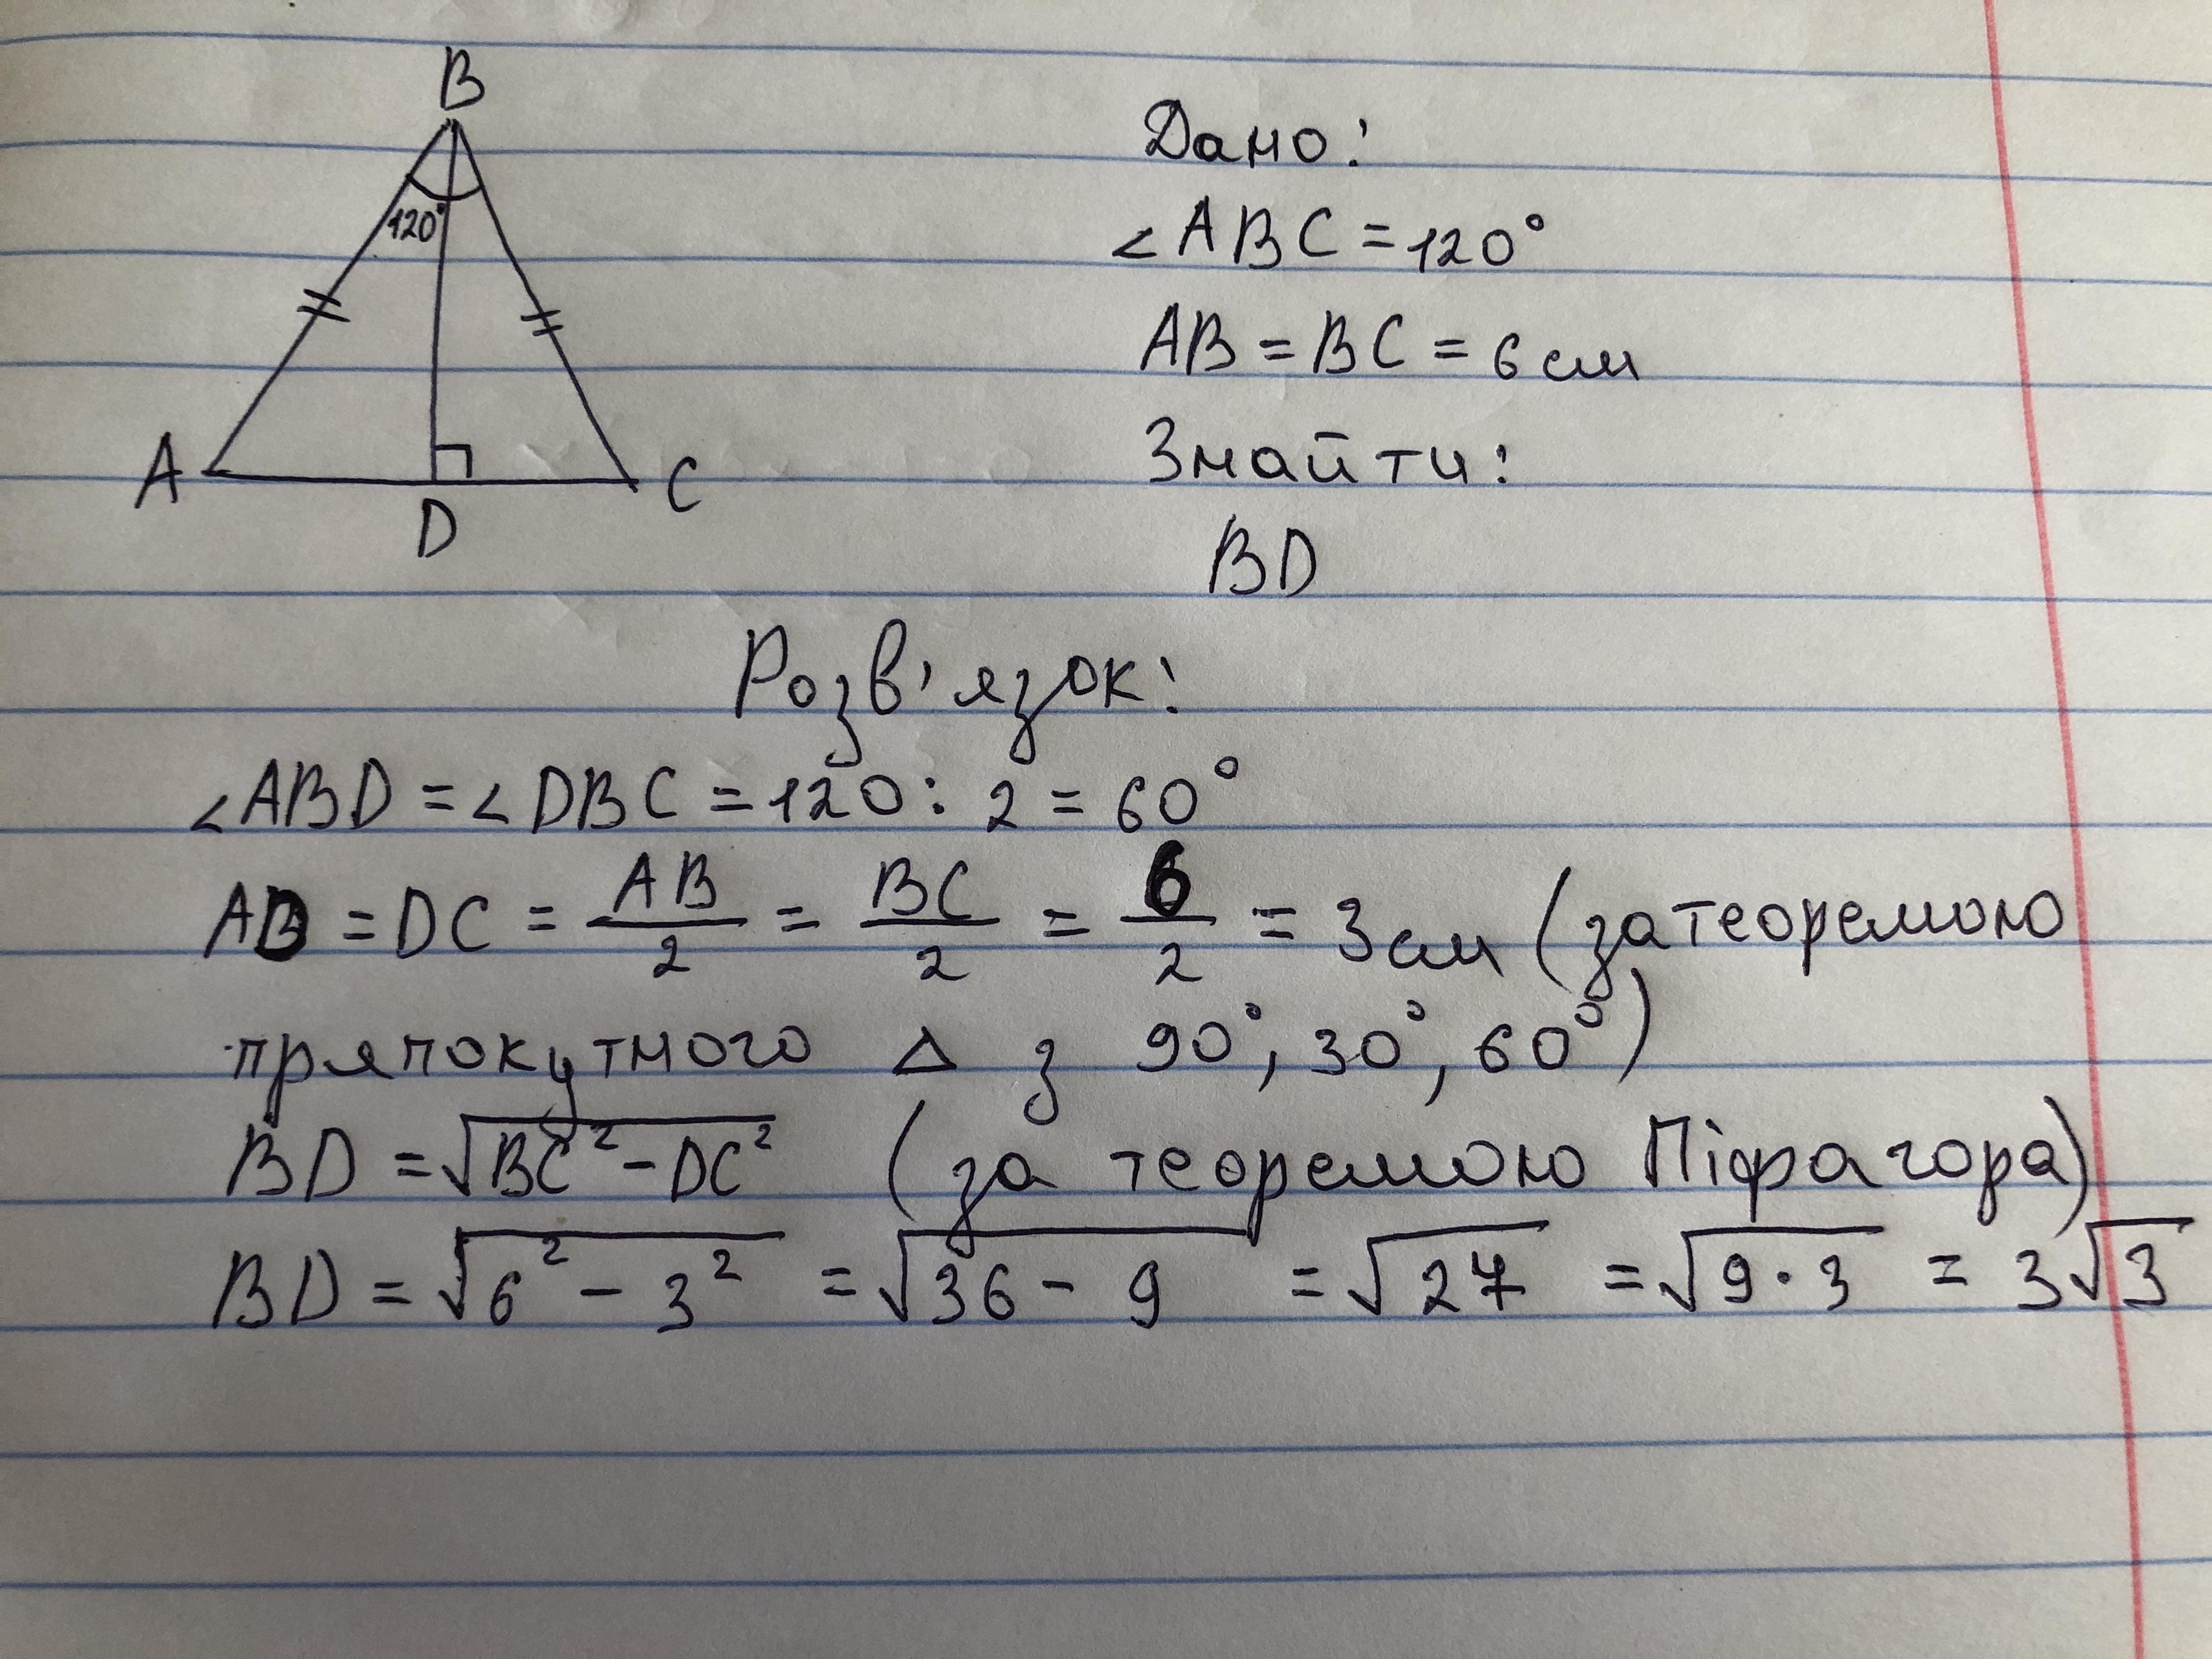 B
120°
A
D
C
Дано:
∠ABC = 120°
AB = BC = 6 см
Знайти:
BD
Розв'язок:
∠ABD = ∠DBC = 120 : 2 = 60°
AD = DC = AB/2 = BC/2 = 6/2 = 3 см (за теоремою
прямокутного △ з 90°, 30°, 60°)
BD = √(BC² - DC²) (за теоремою Піфагора)
BD = √(6² - 3²) = √(36 - 9) = √27 = √(9 · 3) = 3√3